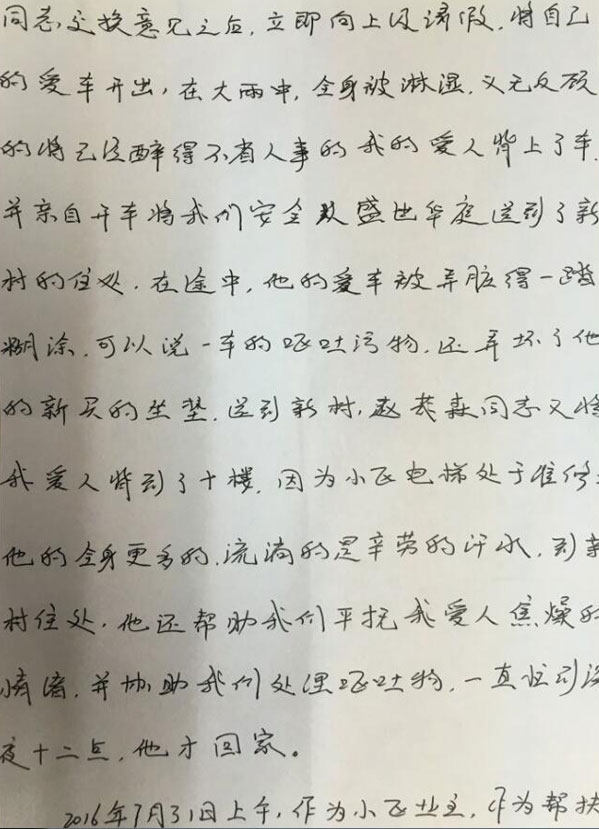 同志交换意见之后，立即向上级请假，将自己
的爱车开出，在大雨中，全身被淋湿，义无反顾
的将已经醉得不省人事的我的爱人背上了车，
并亲自开车将我们安全从盛世华庭送到了新
村的住处。在途中，他的爱车被弄脏得一踏
糊涂，可以说一车的呕吐污物，还弄坏了他
的新买的坐垫。送到新村，赵 森同志又将
我爱人背到了十楼，因为小区电梯处于维修
他的全身更多的，流淌的是辛劳的汗水，到新
村住处，他还帮助我们平抚我爱人焦燥的
情绪，并协助我们处理呕吐物，一直忙到深
夜十二点，他才回家。
2016年7月31日上午，作为小区业主，作为帮扶